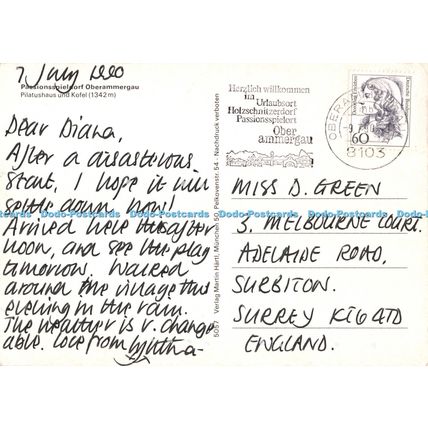 7 July 1990
Passionsspieldorf Oberammergau
Pilatushaus und Kofel (1342m)
Dear Diana,
After a disasterous
start, I hope it will
settle down now!
Arrived here this after
noon, and see the play
tomorrow. Walked
around the village this
evening in the rain.
The weather is v. change
able. Love from
5057 Verlag Martin Härtl, München 50, Pelkovenstr. 54 · Nachdruck verboten
Herzlich willkommen
im
Urlaubsort
Holzschnitzerdorf
Passionsspielort
Ober
ammergau
OBERA
8103
Deutsche Bundespost
60
MISS D. GREEN
3, MELBOURNE COURT.
ADELAIDE ROAD,
SURBITON.
SURREY KT6 4TD
ENGLAND.
Dodo-Postcards Dodo-Postcards Dodo-Postcards Dodo-Postcards